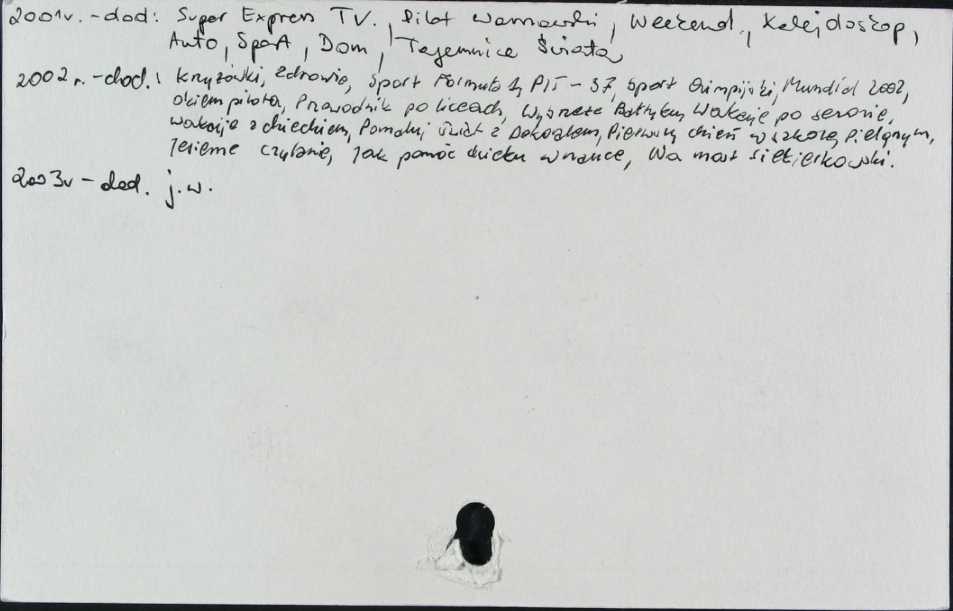 2001r. - dod: Super Express TV., Pilot warszawski, Weekend., Kalejdoskop,
Auto, Sport, Dom, Tajemnice Świata,
2002 r. - dod.: Krzyżówki, Zdrowie, Sport Formuła 1, PIT - 37, Sport Olimpijski, Mundial 2002,
okiem pilota, Przewodnik po liceach, Wybrzeże Bałtyku, Wakacje po sezonie,
Wakacje z dzieckiem, Pomaluj świat z Dekoralem, Pierwszy dzień w szkole, Pielgrzym,
Jesienne czytanie, Jak pomóc dziecku w nauce, Wa most siekierkowski.
2003r - dod. j.w.